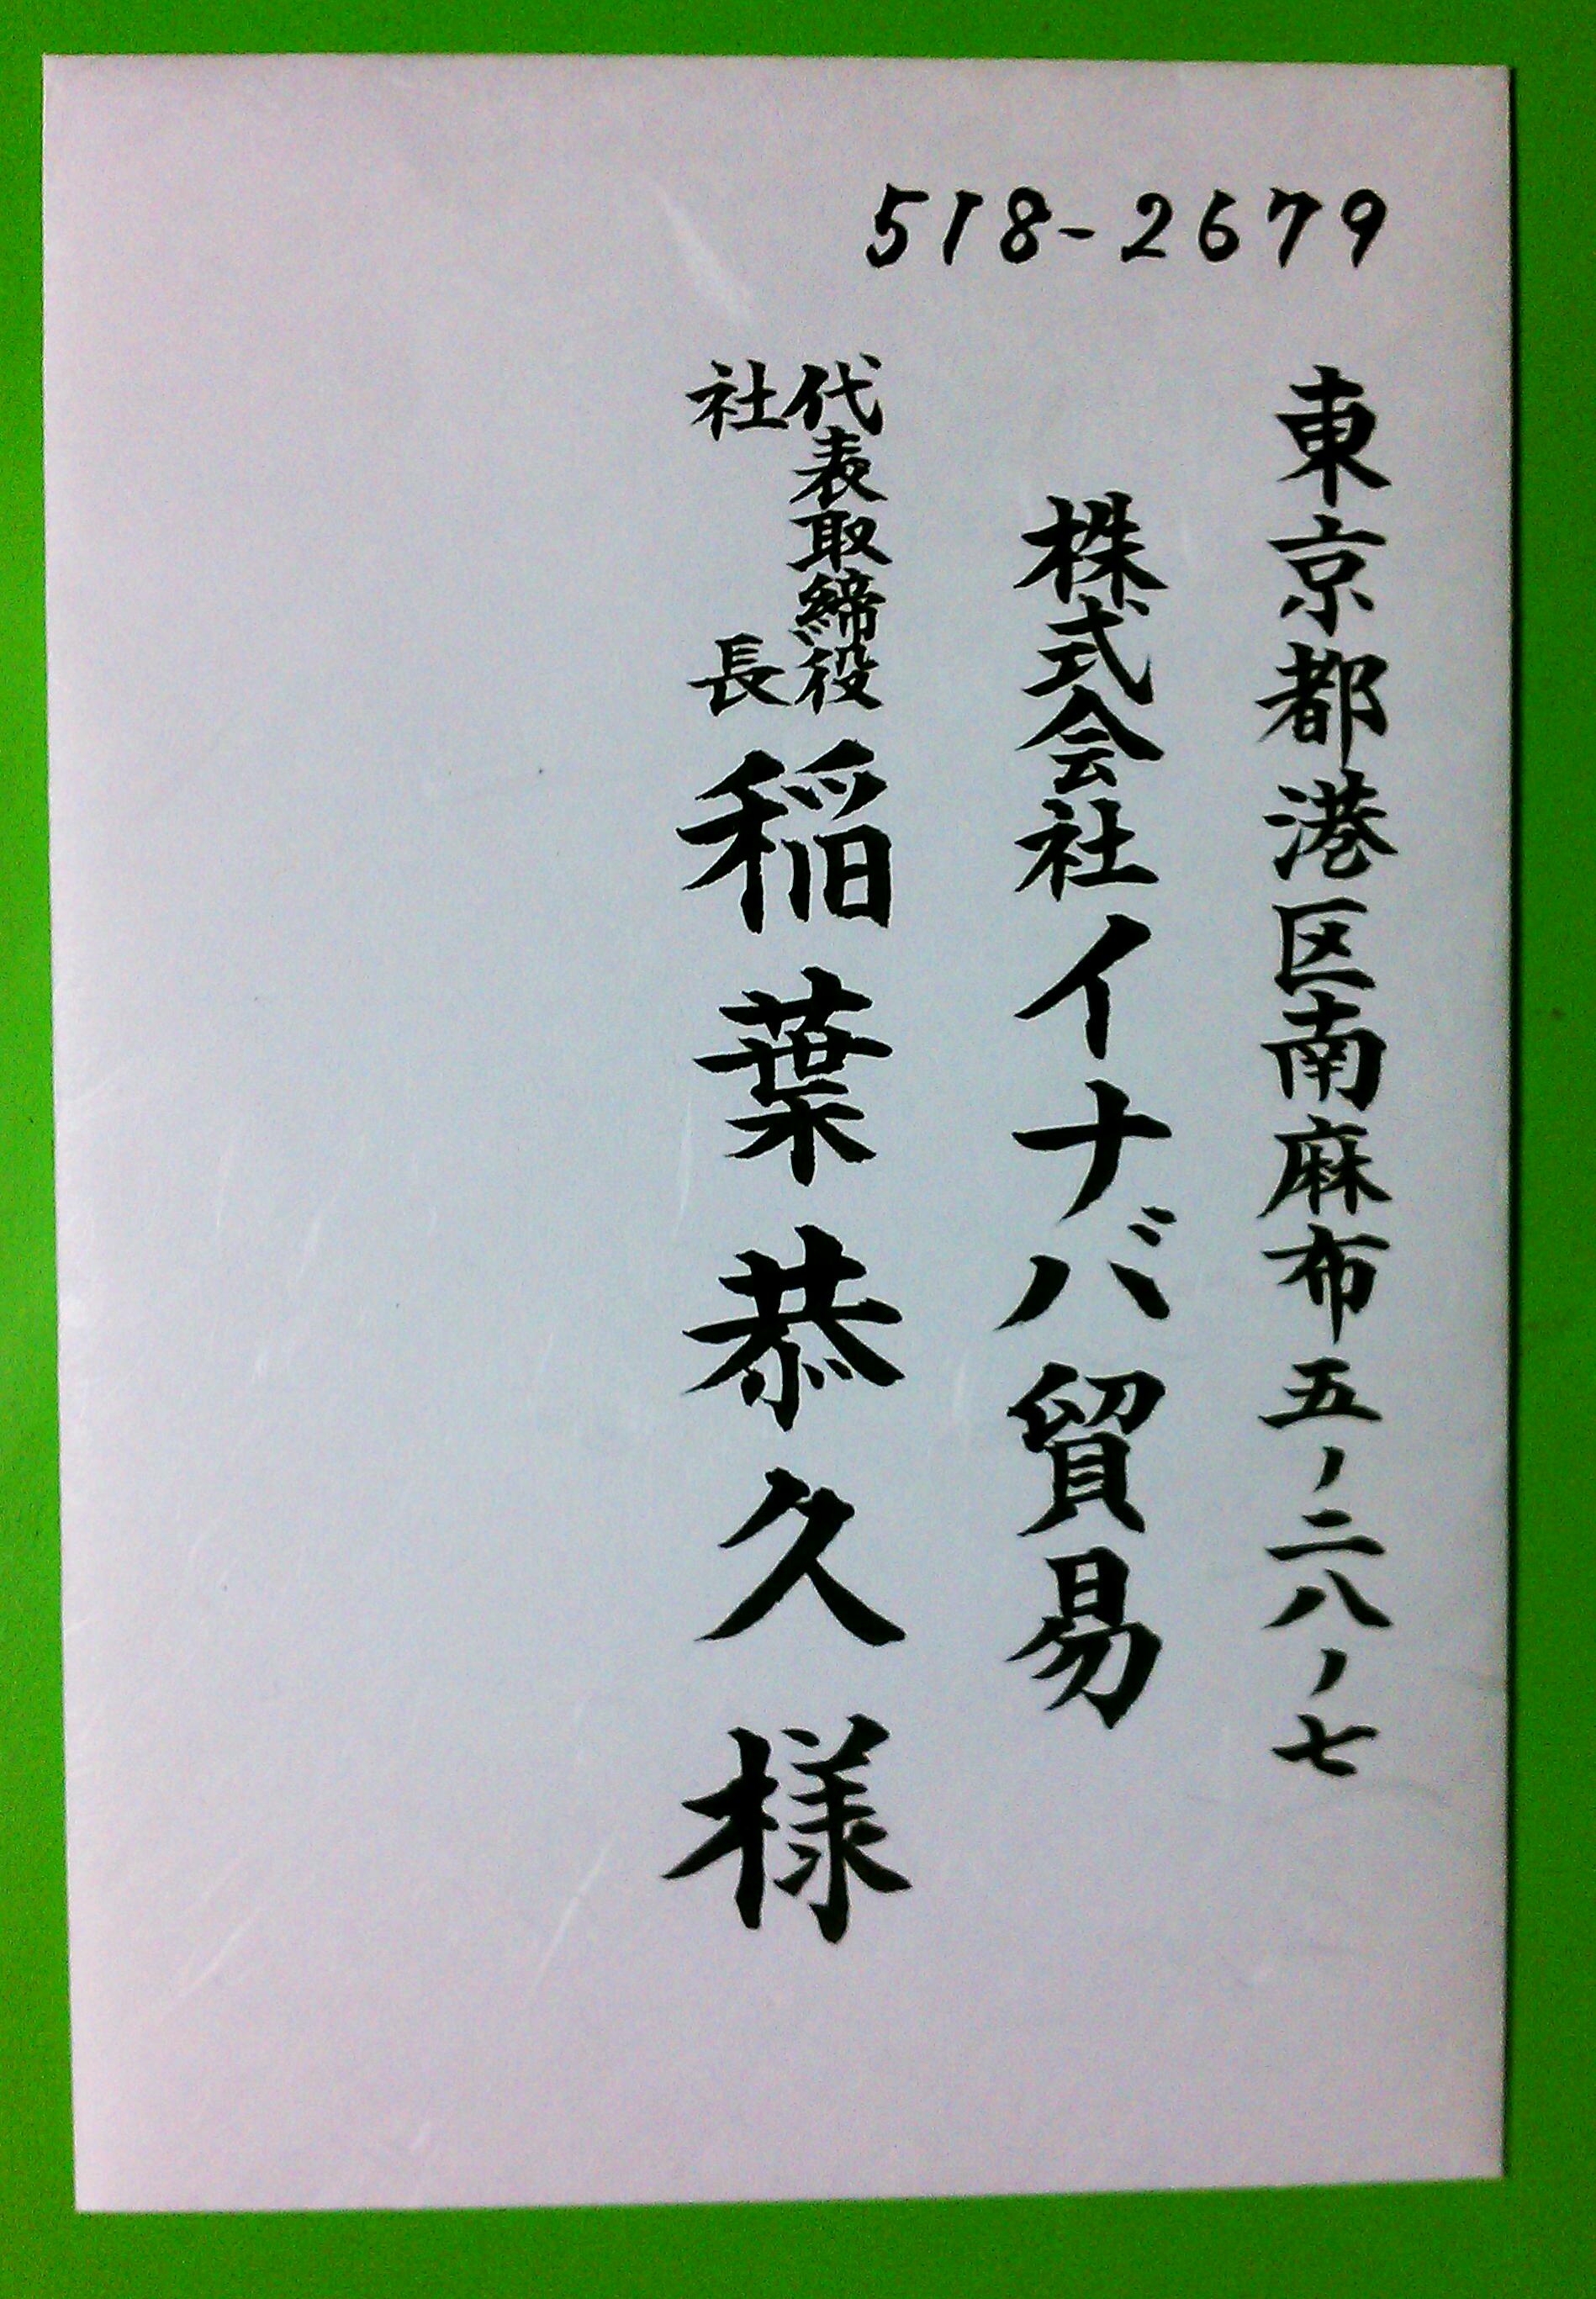 518-2679
東京都港区南麻布五ノ二八ノ七
株式会社イナバ貿易
代表取締役
社長
稲葉恭久様